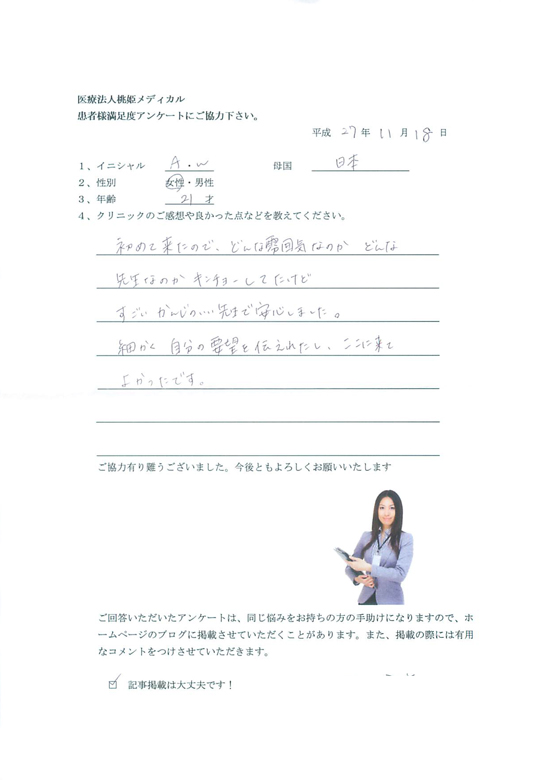 医療法人桃姫メディカル
患者様満足度アンケートにご協力下さい。
平成 27 年 11 月 18 日
1、イニシャル A・W 母国 日本
2、性別 女性・男性
3、年齢 21 才
4、クリニックのご感想や良かった点などを教えてください。
初めて来たので、どんな雰囲気なのか どんな
先生なのか キンチョーしてたけど
すごい かんじのいい先生で安心しました。
細かく 自分の要望を伝えれたし、ここに来て
よかったです。
ご協力有り難うございました。今後ともよろしくお願いいたします
ご回答いただいたアンケートは、同じ悩みをお持ちの方の手助けになりますので、ホ
ームページのブログに掲載させていただくことがあります。また、掲載の際には有用
なコメントをつけさせていただきます。
☑ 記事掲載は大丈夫です！